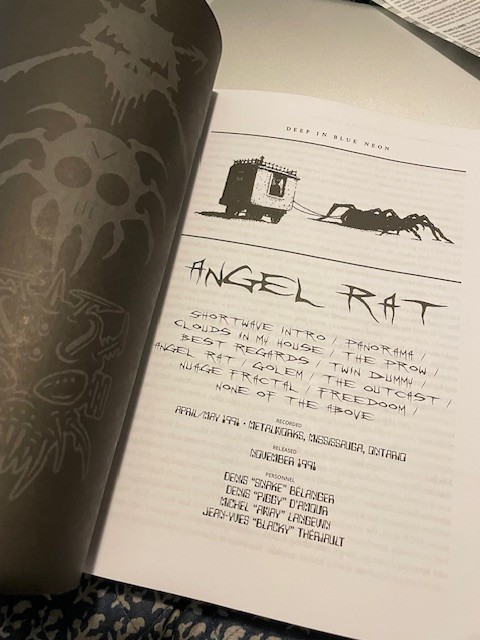 DEEP IN BLUE NEON
ANGEL RAT
SHORTWAVE INTRO / PANORAMA /
CLOUDS IN MY HOUSE / THE PROW /
BEST REGARDS / TWIN DUMMY /
ANGEL RAT / GOLEM / THE OUTCAST /
NUAGE FRACTAL / FREEDOOM /
NONE OF THE ABOVE
RECORDED
APRIL/MAY 1991 - METALWORKS, MISSISSAUGA, ONTARIO
RELEASED
NOVEMBER 1991
PERSONNEL
DENIS "SNAKE" BÉLANGER
DENIS "PIGGY" D'AMOUR
MICHEL "AWAY" LANGEVIN
JEAN-YVES "BLACKY" THÉRIAULT